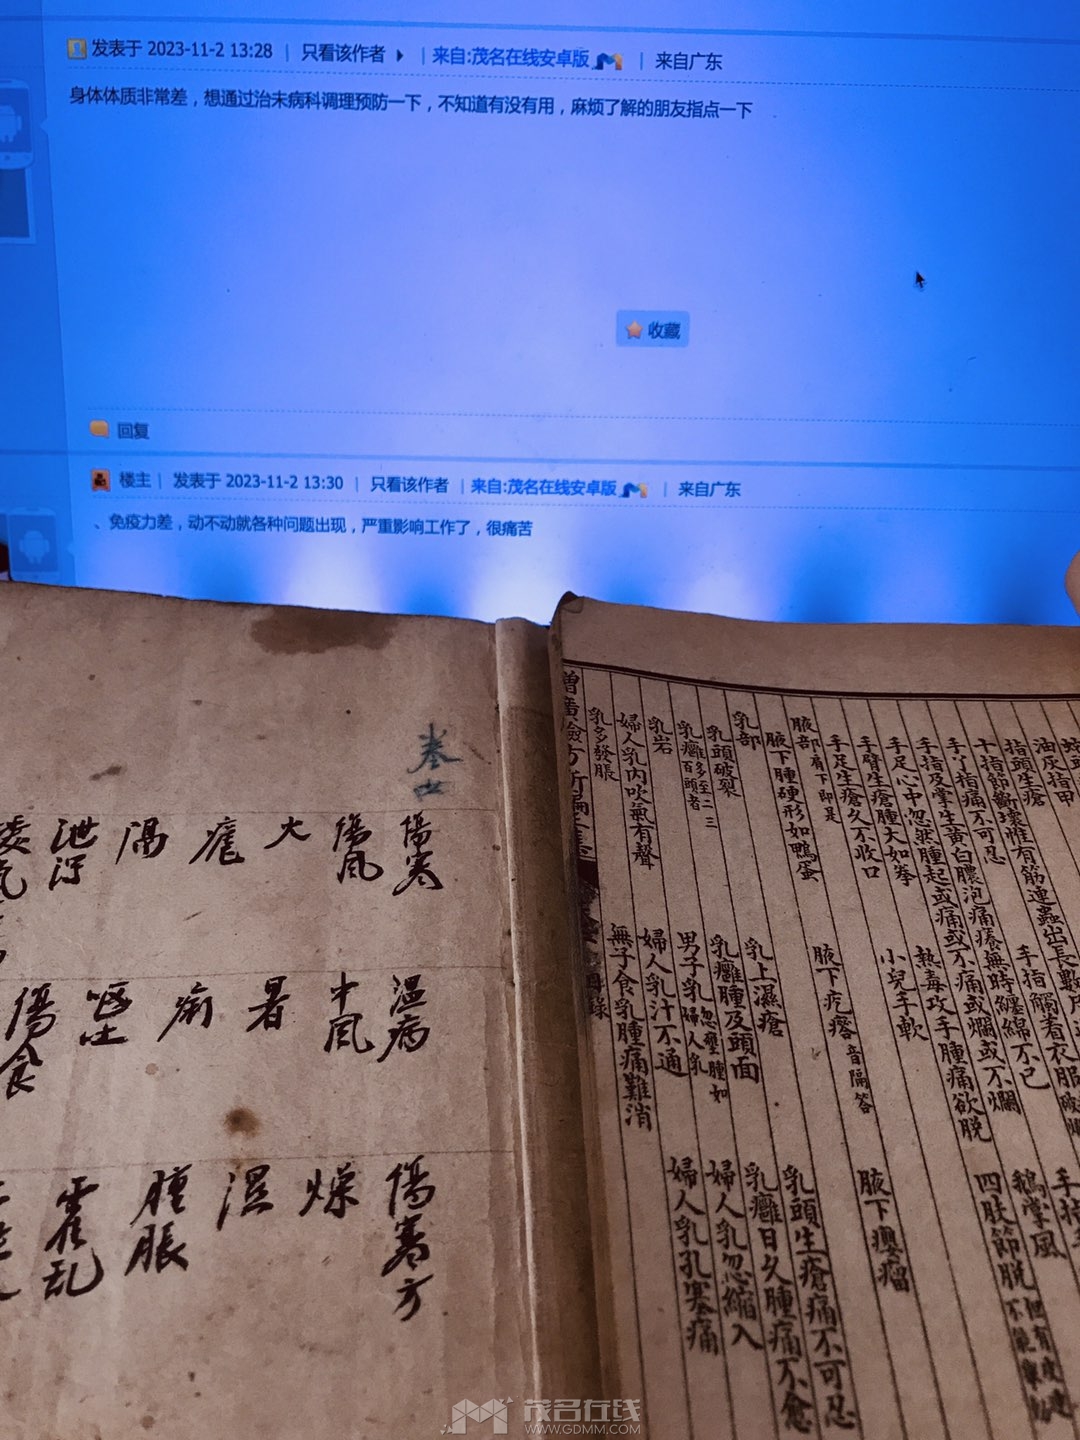 发表于 2023-11-2 13:28 | 只看该作者 | 来自:茂名在线安卓版 | 来自广东
身体体质非常差，想通过治未病科调理预防一下，不知道有没有用，麻烦了解的朋友指点一下
收藏
回复
楼主 | 发表于 2023-11-2 13:30 | 只看该作者 | 来自:茂名在线安卓版 | 来自广东
、免疫力差，动不动就各种问题出现，严重影响工作了，很痛苦
傷寒 溫病 傷寒方
傷風 中風 燥
大 暑 濕
瘧 痢 腫脹
膈 嘔吐 霍乱
泄瀉 傷食
油灰指甲
指頭生瘡 手指觸着衣服
十指節斷壞惟有筋連蟲出長數 鵝掌風
手丫指痛不可忍 無時纏綿不已 四肢節脫
手指及掌生黃白膿泡痛癢
手足心中忽然腫起或痛或不痛或爛或不爛
手臂生瘡腫大如拳 熱毒攻手腫痛欲脫
手足生瘡久不收口 小兒手軟
腋部
腋下腫硬形如鴨蛋 腋下疙瘩音隔答 腋下癭瘤
乳部
乳頭破裂 乳上濕瘡 乳頭生瘡痛不可忍
乳癰多至二三百頭者 乳癰腫及頭面 乳癰日久腫痛不愈
乳岩 男子乳忽壅腫如婦人乳 婦人乳忽縮入
婦人乳內吹氣有聲 婦人乳汁不通 婦人乳孔塞痛
乳多發脹 無子食乳腫痛難消
增廣驗方新編 目錄
茂名在线
WWW.GDMM.COM